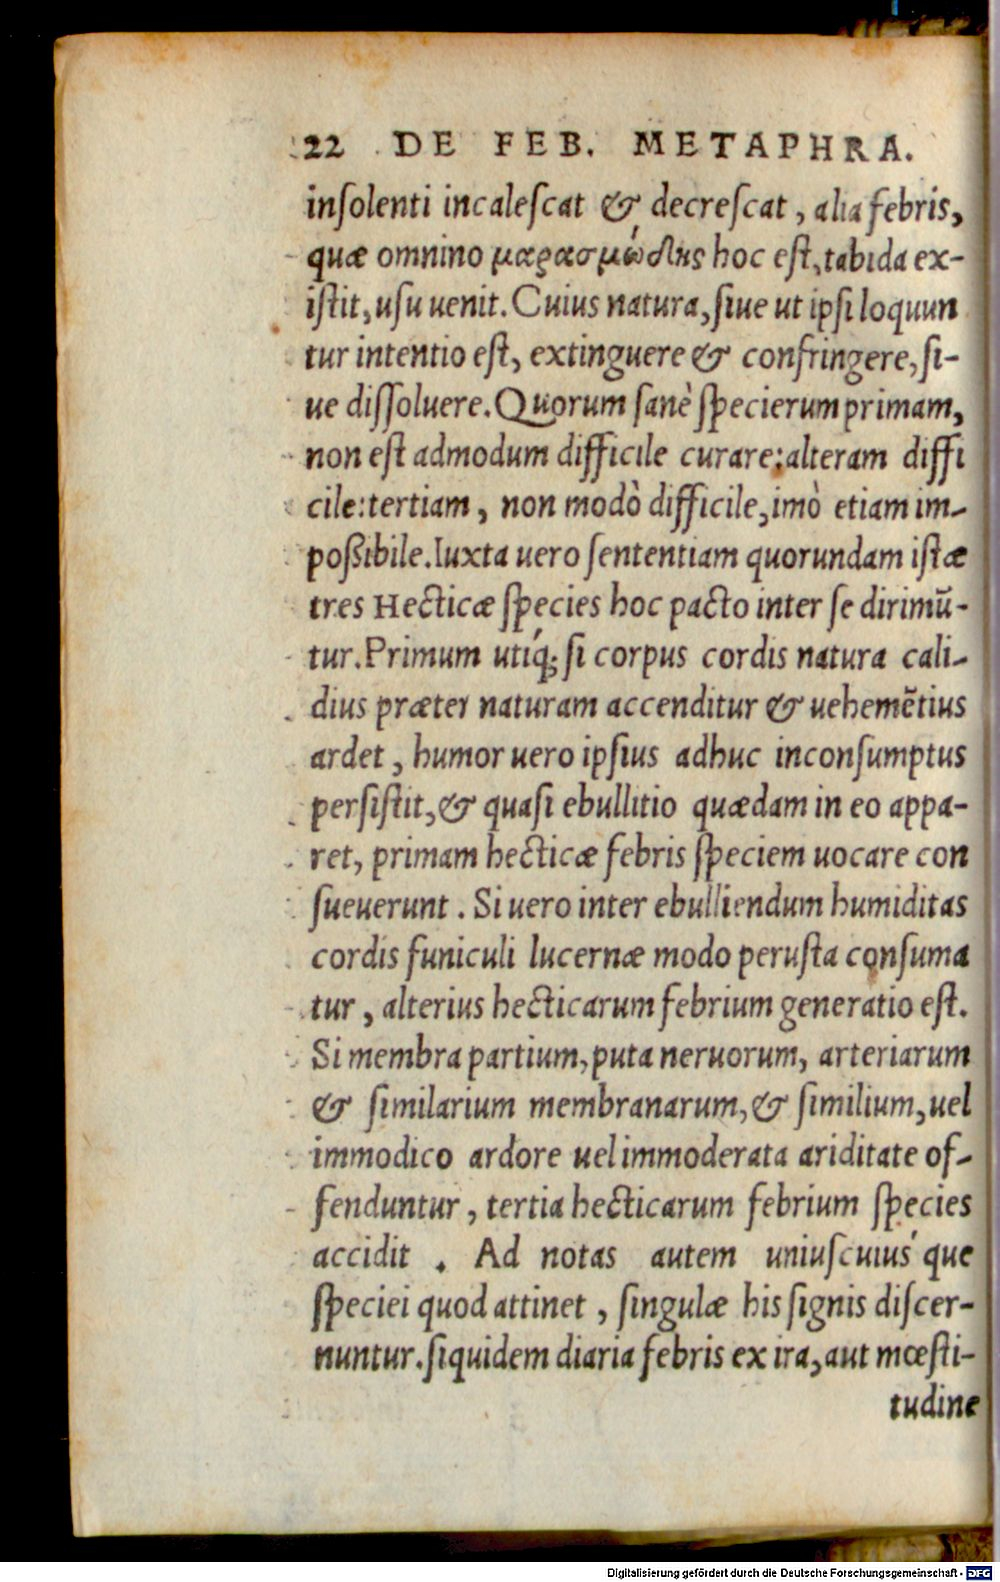 22 DE FEB. METAPHRA.
inſolenti incaleſcat & decreſcat, alia febris,
quæ omnino μαρασμώδης hoc eſt, tabida ex-
iſtit, uſu uenit. Cuius natura, ſiue ut ipſi loquun
tur intentio eſt, extinguere & confringere, ſi-
ue diſſoluere. Quorum ſanè ſpecierum primam,
non eſt admodum difficile curare: alteram diffi
cile: tertiam, non modò difficile, imò etiam im-
poßibile. Iuxta uero ſententiam quorundam iſtæ
tres Hecticæ ſpecies hoc pacto inter ſe dirimū-
tur. Primum utiq́; ſi corpus cordis natura cali-
dius præter naturam accenditur & uehemẽtius
ardet, humor uero ipſius adhuc inconſumptus
perſiſtit, & quaſi ebullitio quædam in eo appa-
ret, primam hecticæ febris ſpeciem uocare con
ſueuerunt. Si uero inter ebulliendum humiditas
cordis funiculi lucernæ modo peruſta conſuma
tur, alterius hecticarum febrium generatio eſt.
Si membra partium, puta neruorum, arteriarum
& ſimilarium membranarum, & ſimilium, uel
immodico ardore uel immoderata ariditate of-
fenduntur, tertia hecticarum febrium ſpecies
accidit. Ad notas autem uniuſcuiuſ́que
ſpeciei quod attinet, ſingulæ his ſignis diſcer-
nuntur. ſiquidem diaria febris ex ira, aut mœſti-
tudine
Digitalisierung gefördert durch die Deutsche Forschungsgemeinschaft - DFG